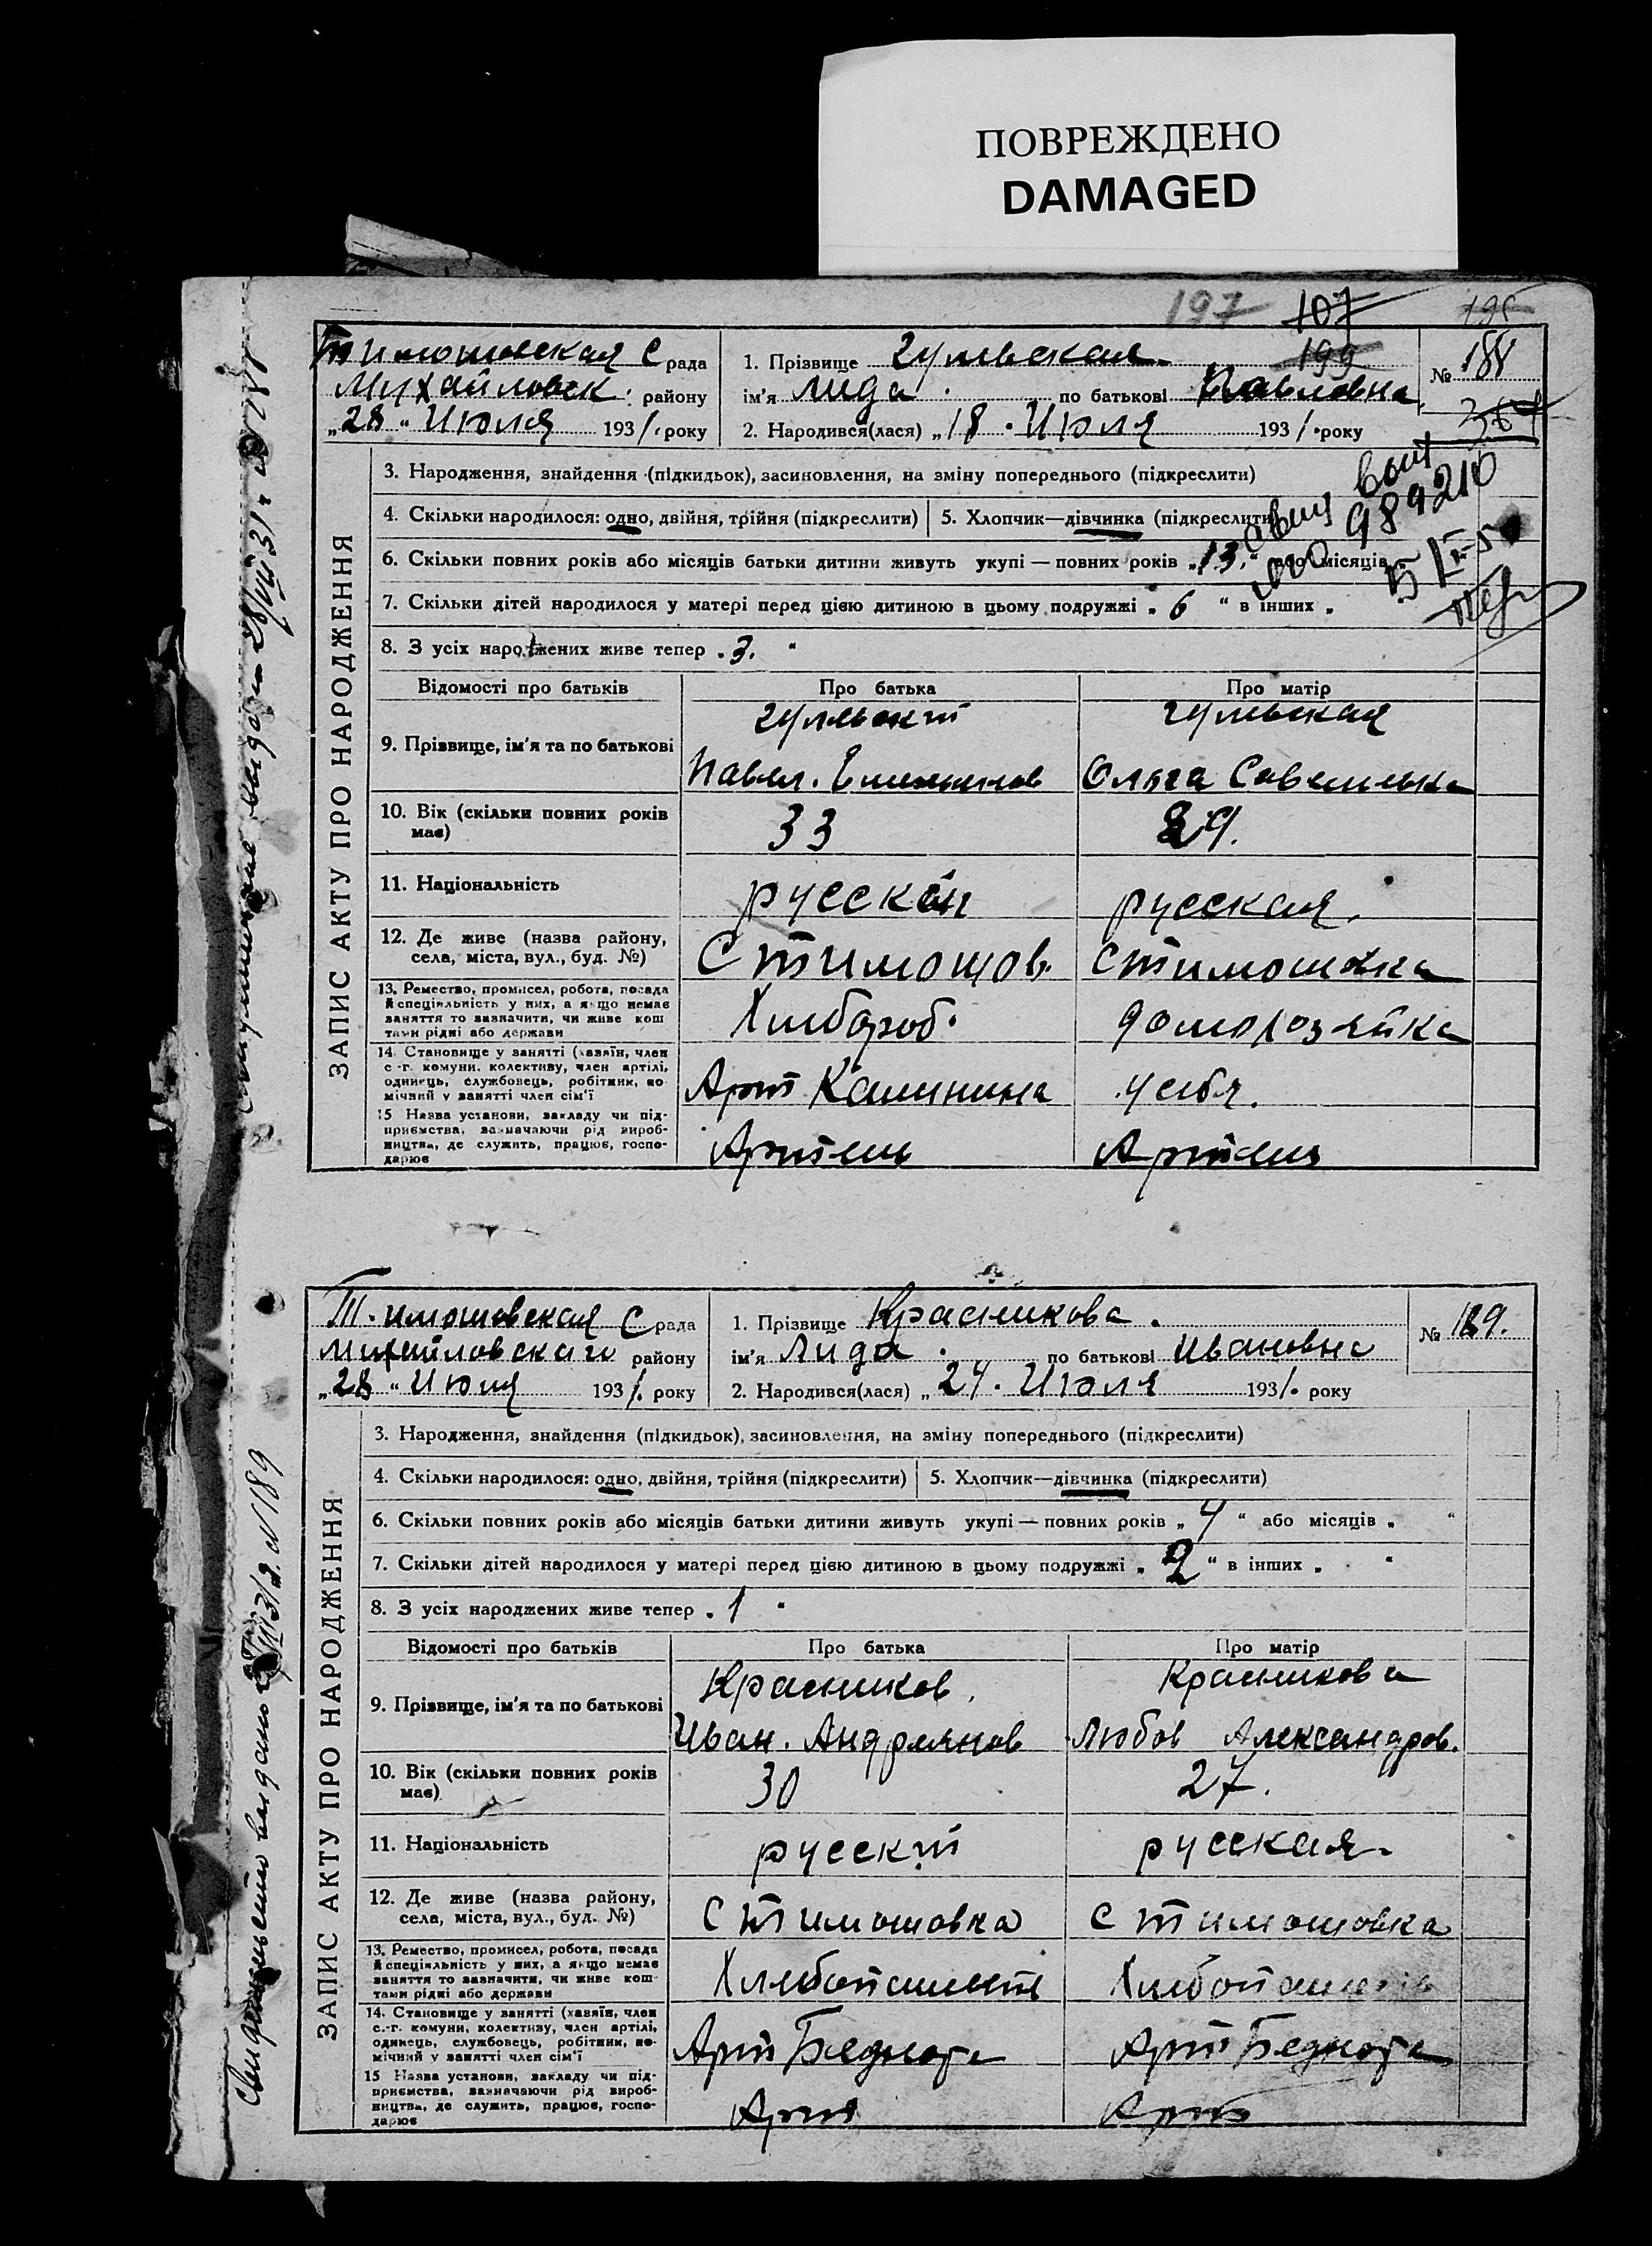 ПОВРЕЖДЕНО
DAMAGED
197 107 195
Тимошовская С рада
Михайловск. району
„28“ Июля 1931. року
1. Прізвище Гульская 199
ім'я Лида по батькові Павловна
2. Народився(лася) „18. Июля 1931. року
№ 188
ЗАПИС АКТУ ПРО НАРОДЖЕННЯ
3. Народження, знайдення (підкидьок), засиновлення, на зміну попереднього (підкреслити)
4. Скільки народилося: одно, двійня, трійня (підкреслити) 5. Хлопчик—дівчинка (підкреслити)
6. Скільки повних років або місяців батьки дитини живуть укупі — повних років „13.“ або місяців
7. Скільки дітей народилося у матері перед цією дитиною в цьому подружжі „6“ в інших „
8. З усіх народжених живе тепер „3.“
989210
Відомості про батьків Про батька Про матір
9. Прізвище, ім'я та по батькові
Гульский Гульская
Павел. Ольга Савельевна
10. Вік (скільки повних років має) 33 29.
11. Національність русский русская.
12. Де живе (назва району, села, міста, вул., буд. №) С Тимошов. С Тимошовка
13. Ремество, промисел, робота, посада й спеціяльність у них, а якщо немає заняття то зазначити, чи живе коштами рідні або держави
Хлибороб. домохозяйка
14. Становище у занятті (хазяїн, член с.-г. комуни, колективу, член артілі, одинець, службовець, робітник, помічний у занятті член сім'ї
Арт Калинина у себя.
15 Назва установи, закладу чи підприємства, зазначаючи рід виробництва, де служить, працює, господарює
Артель Артель
Т.имошовская С рада
Михайловскаго району
„28“ Июля 1931. року
1. Прізвище Красникова.
ім'я Лида. по батькові Ивановна
2. Народився(лася) „24. Июля 1931. року
№ 189.
ЗАПИС АКТУ ПРО НАРОДЖЕННЯ
3. Народження, знайдення (підкидьок), засиновлення, на зміну попереднього (підкреслити)
4. Скільки народилося: одно, двійня, трійня (підкреслити) 5. Хлопчик—дівчинка (підкреслити)
6. Скільки повних років або місяців батьки дитини живуть укупі — повних років „4“ або місяців „ “
7. Скільки дітей народилося у матері перед цією дитиною в цьому подружжі „2“ в інших „ “
8. З усіх народжених живе тепер „1“
Відомості про батьків Про батька Про матір
9. Прізвище, ім'я та по батькові
Красников. Красникова
Иван. Андреянов Любов Александров.
10. Вік (скільки повних років має) 30 27.
11. Національність русский русская
12. Де живе (назва району, села, міста, вул., буд. №) С Тимошовка С Тимошовка
13. Ремество, промисел, робота, посада й спеціяльність у них, а якщо немає заняття то зазначити, чи живе коштами рідні або держави
14. Становище у занятті (хазяїн, член с.-г. комуни, колективу, член артілі, одинець, службовець, робітник, помічний у занятті член сім'ї
Арт Беднота Арт Беднота
15 Назва установи, закладу чи підприємства, зазначаючи рід виробництва, де служить, працює, господарює
Арт Арт
Свидетельство выдано N 189